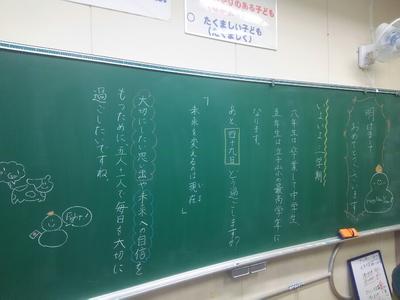 やりのある子ども
たくましい子ども
(たくましく)
明けまして
おめでとうございます
いよいよ三学期。
六年生は卒業して中学生、
五年生は立子山小の最高学年に
なります。
あと四十九日どう過ごしますか?
「未来を変えるのは現在」
大切にしたい思い出や未来への自信を
もつために五人+一人で毎日を大切に
過ごしたいですね。
Fight!